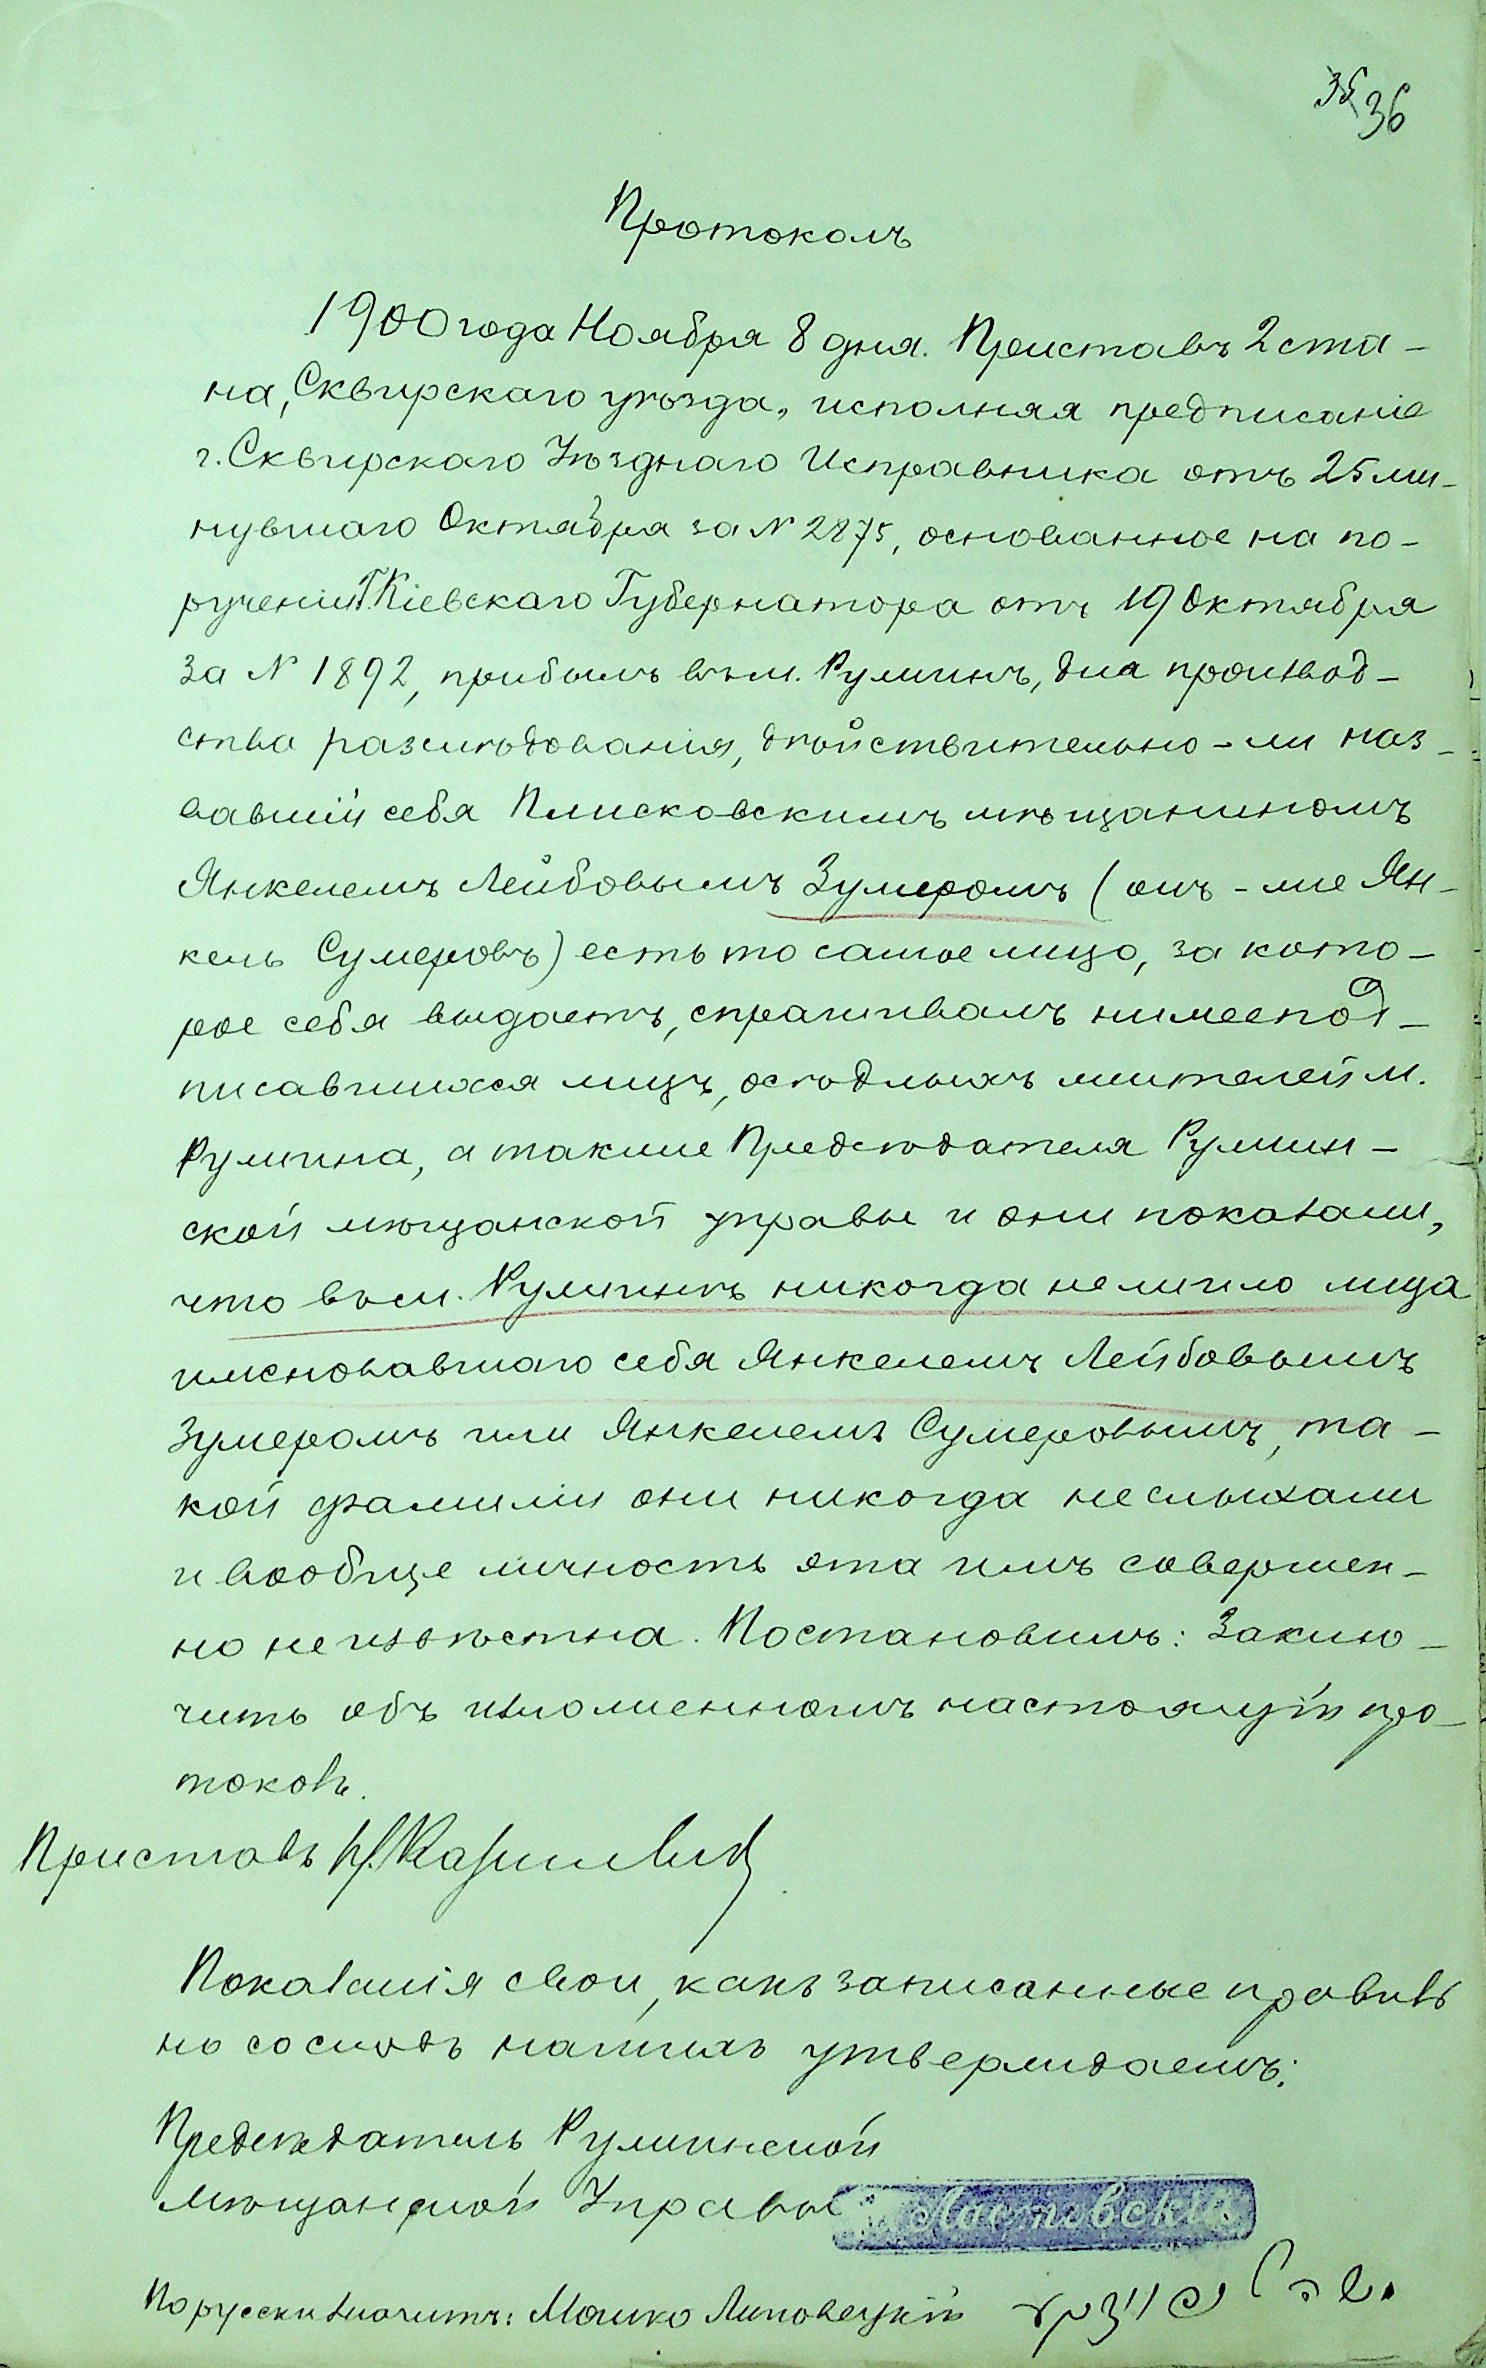 35 36
Протоколъ
1900 года Ноября 8 дня. Приставъ 2 ста-
на, Сквирскаго уѣзда, исполняя предписаніе
г. Сквирскаго Уѣзднаго Исправника отъ 25 ми-
нувшаго Октября за № 2875, основанное на по-
рученіи Г. Кіевскаго Губернатора отъ 19 Октября
за № 1892, прибылъ въ м. Ружинъ, для производ-
ства разслѣдованія, дѣйствительно-ли наз-
вавшій себя Плисковскимъ мѣщаниномъ
Янкелемъ Лейбовымъ Зумеромъ (онъ-же Ян-
кель Сумеровъ) есть то самое лицо, за кото-
рое себя выдаетъ, спрашивалъ нижеепод-
писавшихся лицъ, осѣдлыхъ жителей м.
Ружина, а также Предсѣдателя Ружин-
ской мѣщанской управы и они показали,
что въ м. Ружинѣ никогда не жило лица
именовавшаго себя Янкелемъ Лейбовымъ
Зумеромъ или Янкелемъ Сумеровымъ, та-
кой фамиліи они никогда не слыхали
и вообще личность эта имъ совершен-
но неизвѣстна. Постановилъ: Заклю-
чить объ изложенномъ настоящій про-
токолъ.
Приставъ
Показанія свои, какъ записанные правиль
но со словъ нашихъ утверждаемъ:
Предсѣдатель Ружинской
Мѣщанской Управы Ластовскій
По русски значитъ: Мошко Липовецкій